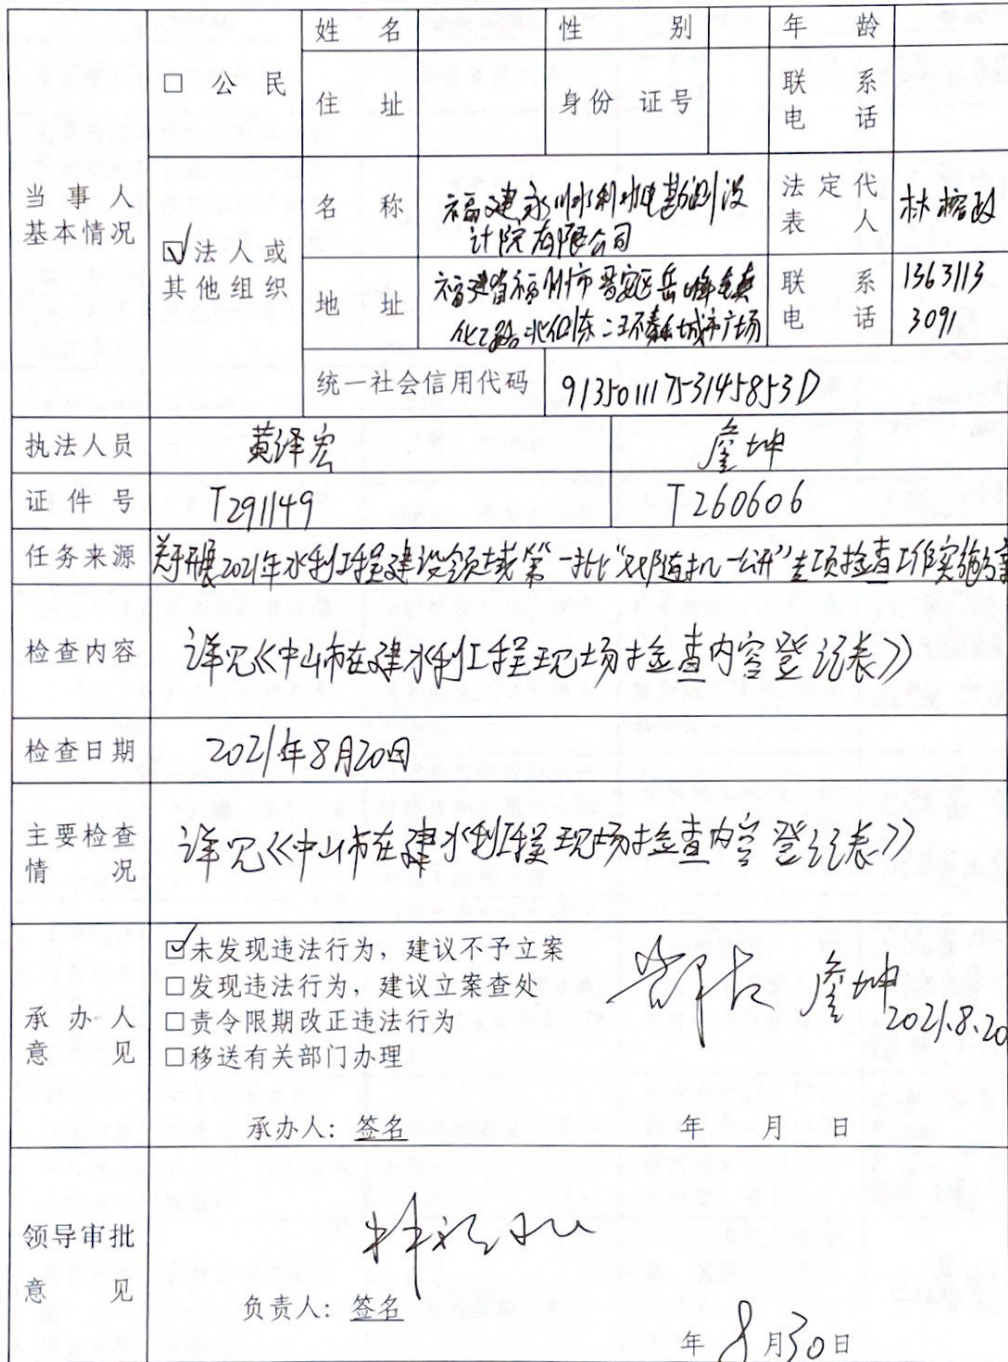 姓 名
性 别
年 龄
□ 公 民
住 址
身份 证号
联 系
电 话
当 事 人
基本情况
☑法人或
其他组织
名 称
福建永川水利水电勘测设
计院有限公司
法 定 代
表 人
林榕政
地 址
福建省福州市晋安区岳峰镇
化工路北侧东二环泰禾城市广场
联 系
电 话
1363113
3091
统一社会信用代码
91350111753145853D
执法人员
黄泽宏
詹坤
证 件 号
T291149
T260606
任务来源
关于开展2021年水利工程建设领域第一批“双随机一公开”专项检查工作实施方案
检查内容
详见《中山市在建水利工程现场检查内容登记表》
检查日期
2021年8月20日
主要检查
情 况
详见《中山市在建水利工程现场检查内容登记表》
承 办 人
意 见
☑未发现违法行为，建议不予立案
□发现违法行为，建议立案查处
□责令限期改正违法行为
□移送有关部门办理
詹坤
2021.8.20
承办人：签名
年 月 日
领导审批
意 见
负责人：签名
年 8月30日